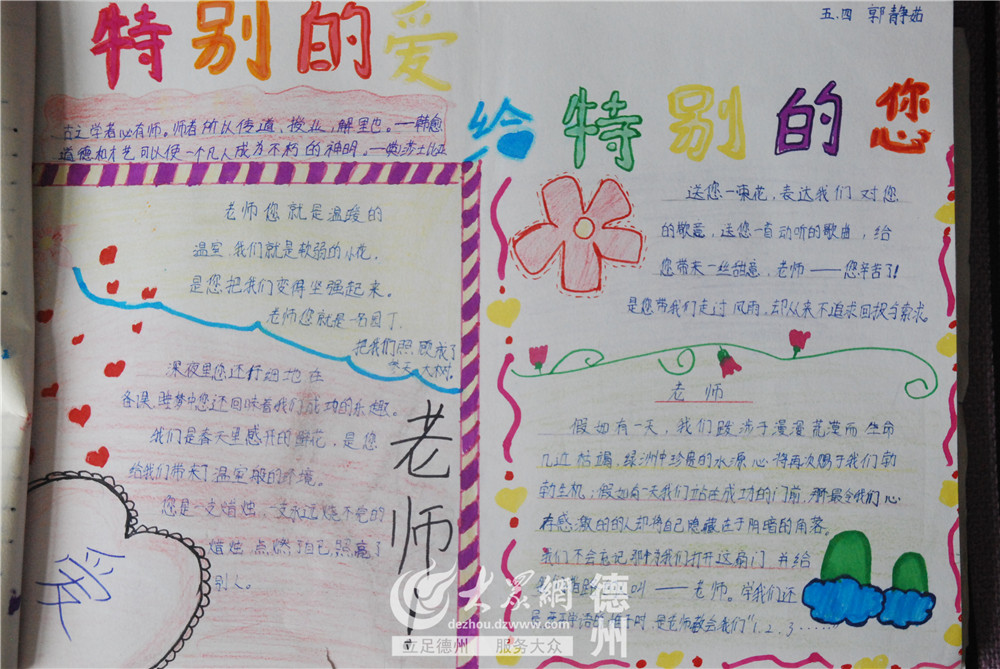 特别的爱
五.四 郭静茹
给特别的您
古之学者必有师。师者所以传道,授业,解里也。——韩愈
道德和才艺可以使一个凡人成为不朽的神明。——莎士比亚
老师您就是温暖的
温室,我们就是软弱的小花,
是您把我们变得坚强起来。
老师您就是一名园丁,
把我们照顾成了
参天大树。
深夜里您还仔细地在
备课,睡梦中您还回味着我们成功的乐趣。
我们是春天里盛开的鲜花,是您
给我们带来了温室般的环境。
您是一支蜡烛,一支永远烧不完的
蜡烛,点燃了自己,照亮了
别人。
老师!
爱
送您一束花,表达我们对您
的敬意,送您一首动听的歌曲,给
您带来一丝甜意,老师——您辛苦了!
是您带我们走过风雨,却从来不追求回报与索求。
老师
假如有一天,我们跋涉于漫漫荒漠而生命
几近枯竭,绿洲中珍贵的水源心将再次赐于我们勃
勃生机;假如有一天我们站在成功的门前,那最令我们心
存感激的的人却将自己隐藏在于阴暗的角落。
我们不会忘记那个为我们打开这扇门,并给
叫——老师。学我们还
是时,是老师教会我们“1.2.3……
大众網 德州
dezhou.dzwww.com
立足德州 服务大众